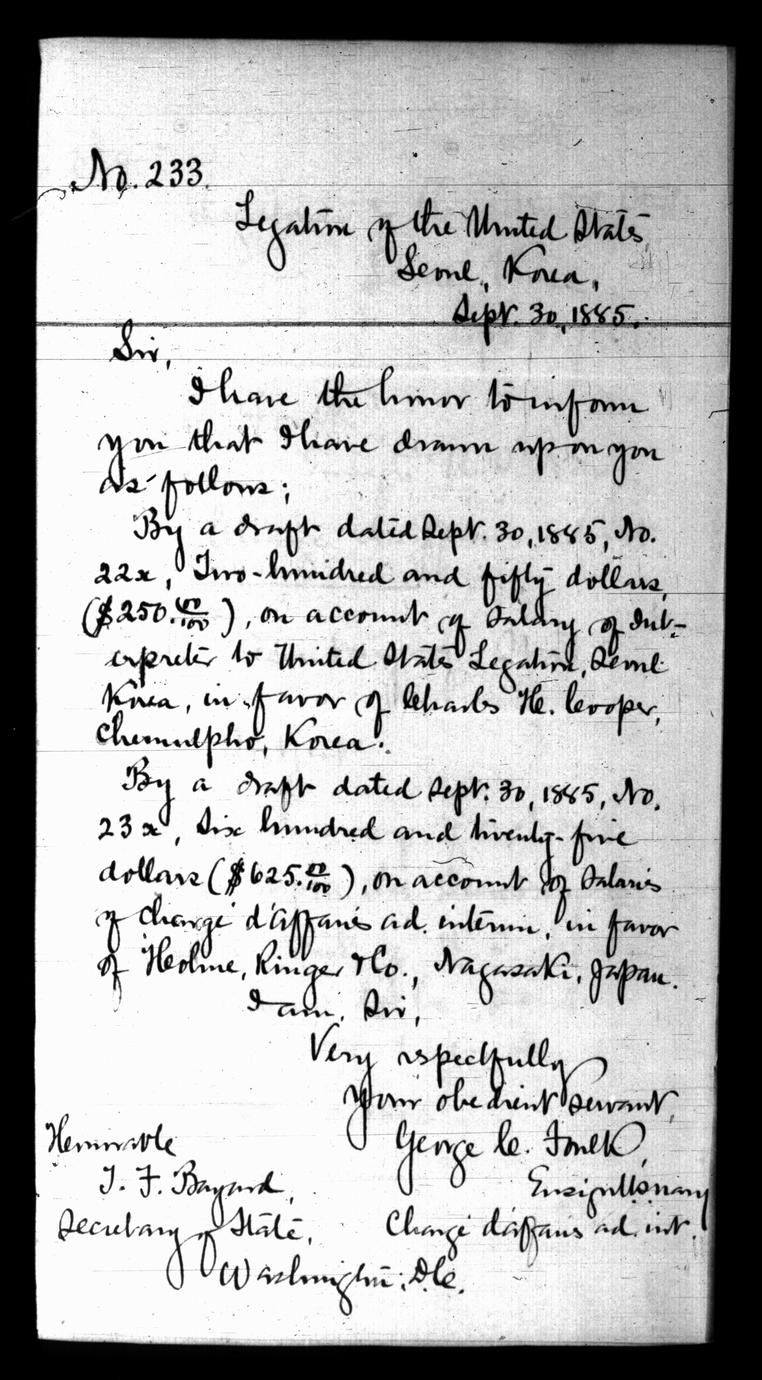 No. 233.
Legation of the United States
Seoul, Korea,
Sept. 30, 1885.
Sir,
I have the honor to inform
you that I have drawn upon you
as follows;
By a draft dated Sept. 30, 1885, No.
22x, Two-hundred and fifty dollars,
($250.00/100), on account of Salary of Int-
erpreter to United States Legation, Seoul
Korea, in favor of Charles H. Cooper,
Chemulpho, Korea.
By a draft dated Sept. 30, 1885, No.
23x, Six hundred and twenty-five
dollars ($625.00/100), on account of Salaries
of Chargé d'affaires ad. interim, in favor
of Holme, Ringer & Co., Nagasaki, Japan.
I am, Sir,
Very respectfully
your obedient servant,
Honorable
George C. Foulk,
T. F. Bayard,
Ensign U.S. navy
Secretary of State,
Chargé d'affaires ad. int.
Washington, D.C.